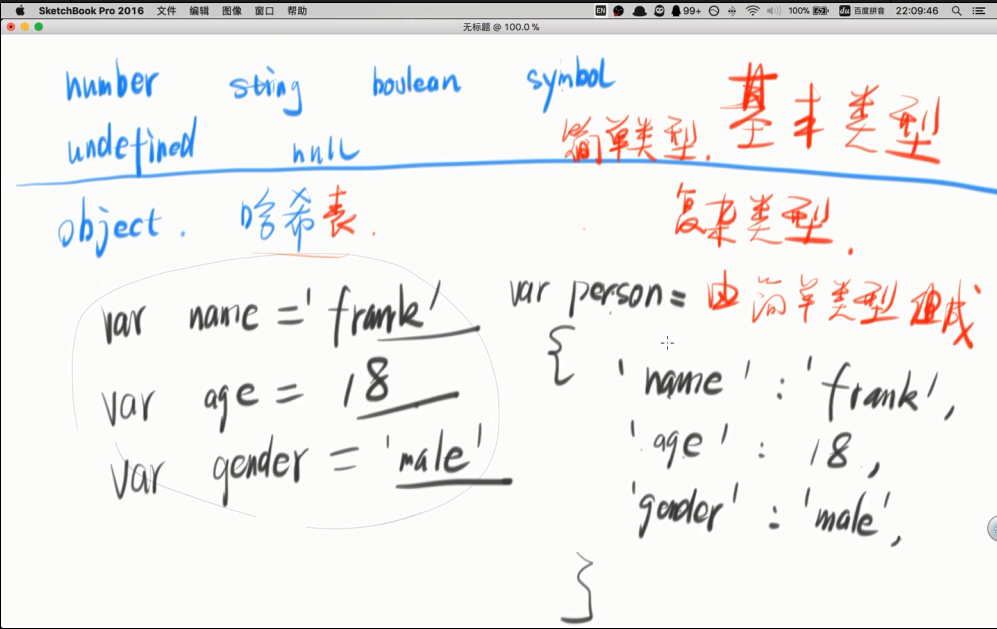 SketchBook Pro 2016 文件 编辑 图像 窗口 帮助 EN 99+ 100% du 百度拼音 22:09:46
无标题 @ 100.0 %
number string boolean symbol
undefined null 简单类型. 基本类型
object. 哈希表. 复杂类型.
var name = 'frank'
var age = 18
var gender = 'male'
var person = 由简单类型组成
{ 'name' : 'frank',
'age' : 18,
'gender' : 'male',
}